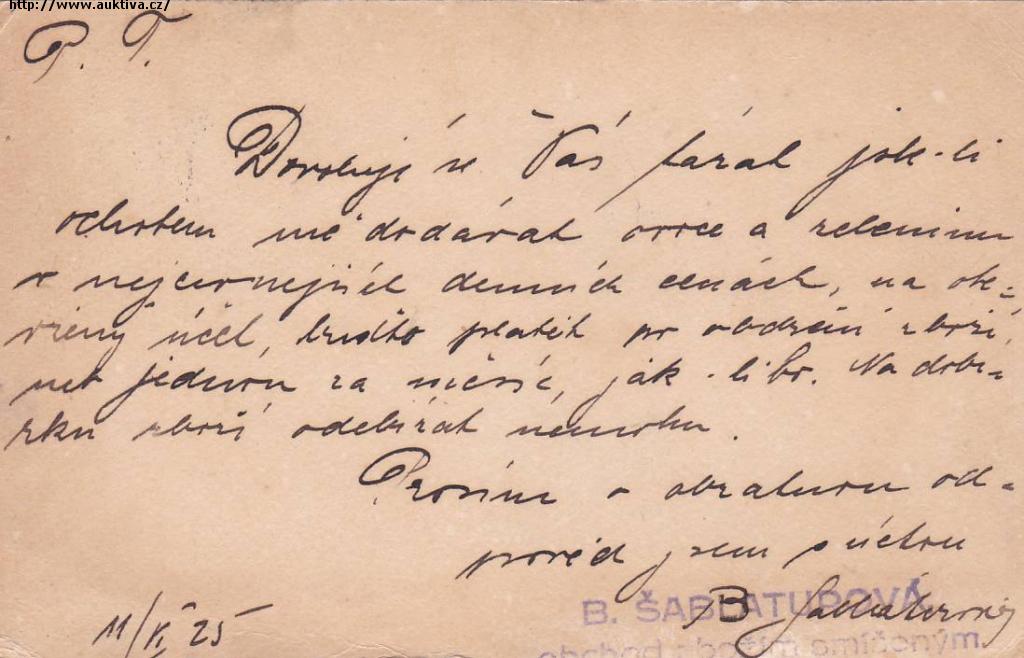 http://www.auktiva.cz/
P. T.
Dovoluji se Vás tázat jak-li
ochoten mě dodávat ovoce a zeleninu
v nejcennějších denních cenách, na ote-
vřený účet, buďto platit po obdržení zboží,
neb jednou za měsíc, jak-libo. Na dobí-
rku zboží odebírat nemohu.
Prosím o obratnou od-
pověď jsem s úctou
B. ŠABLATUROVÁ
B Šablaturová
obchod zbožím smíšeným.
11/VI 25